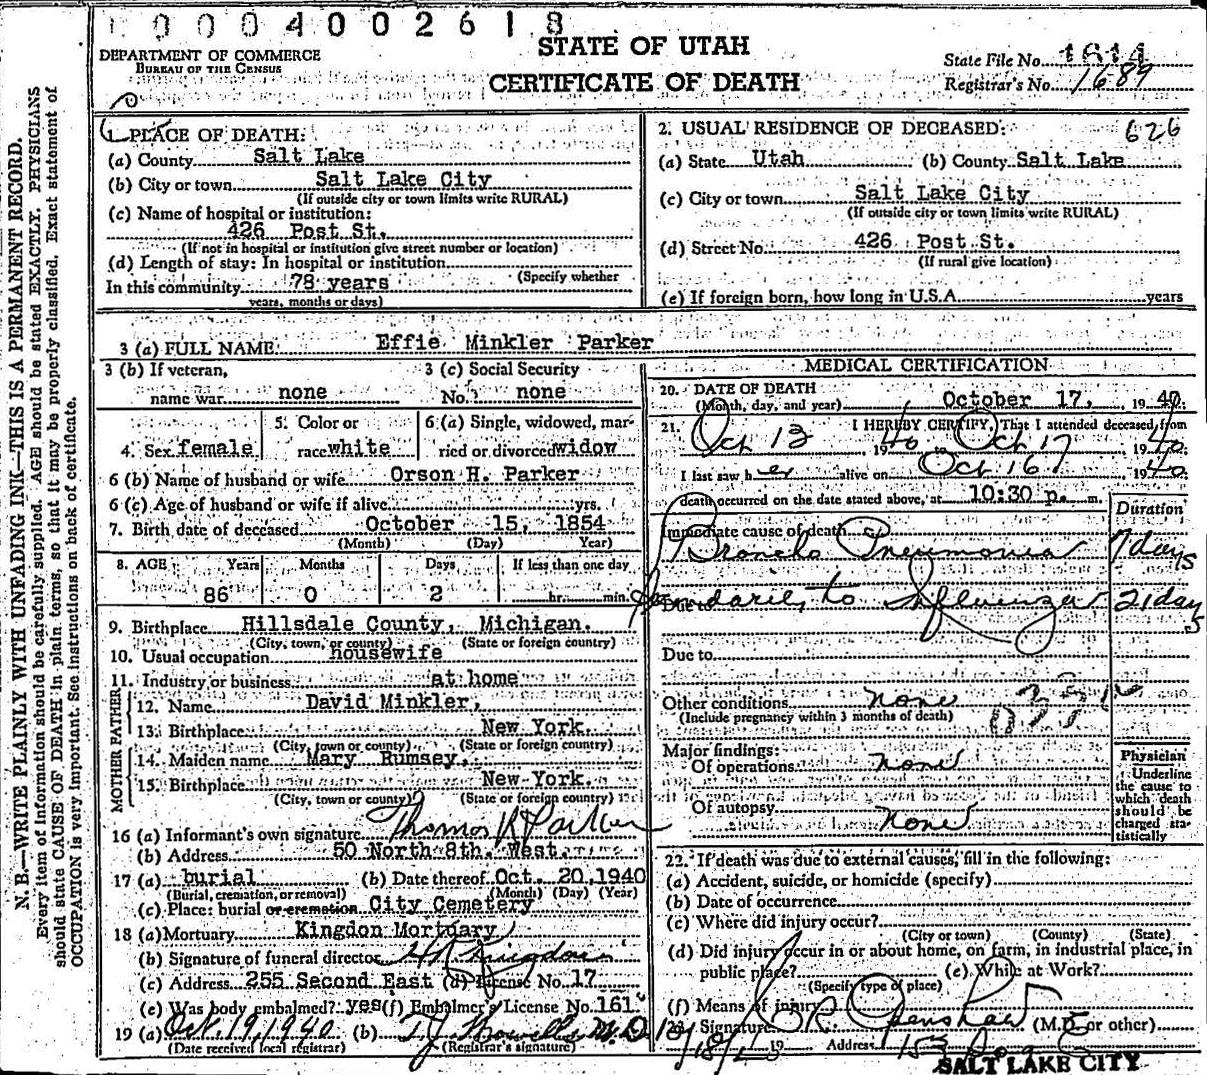 1 0 0 0 4 0 0 2 6 1 8
DEPARTMENT OF COMMERCE
BUREAU OF THE CENSUS
STATE OF UTAH
CERTIFICATE OF DEATH
State File No. 1614
Registrar's No. 1689
1. PLACE OF DEATH:
(a) County Salt Lake
(b) City or town Salt Lake City
(If outside city or town limits write RURAL)
(c) Name of hospital or institution:
426 Post St.
(If not in hospital or institution give street number or location)
(d) Length of stay: In hospital or institution
(Specify whether
In this community 78 years
years, months or days)
2. USUAL RESIDENCE OF DECEASED: 626
(a) State Utah (b) County Salt Lake
(c) City or town Salt Lake City
(If outside city or town limits write RURAL)
(d) Street No. 426 Post St.
(If rural give location)
(e) If foreign born, how long in U.S.A. years
3 (a) FULL NAME: Effie Minkler Parker
3 (b) If veteran, name war none
3 (c) Social Security No. none
4. Sex female
5. Color or race white
6 (a) Single, widowed, married or divorced widow
6 (b) Name of husband or wife Orson H. Parker
6 (c) Age of husband or wife if alive yrs.
7. Birth date of deceased October 15, 1854
(Month) (Day) Year)
8. AGE Years Months Days If less than one day
86 0 2 hr. min.
9. Birthplace Hillsdale County, Michigan.
(City, town, or county) (State or foreign country)
10. Usual occupation housewife
11. Industry or business at home
FATHER
12. Name David Minkler,
13. Birthplace New York.
(City, town or county) (State or foreign country)
MOTHER
14. Maiden name Mary Rumsey,
15. Birthplace New York.
(City, town or county) (State or foreign country)
16 (a) Informant's own signature Thomas K Parker
(b) Address 50 North 8th. West.
17 (a) burial (b) Date thereof Oct. 20, 1940
(Burial, cremation, or removal) (Month) (Day) (Year)
(c) Place: burial or cremation City Cemetery
18 (a) Mortuary Kingdon Mortuary
(b) Signature of funeral director
(c) Address 255 Second East (d) License No. 17
(e) Was body embalmed? yes (f) Embalmer's License No. 161
19 (a) Oct. 19, 1940 (b) M.D.
(Date received local registrar) (Registrar's signature)
MEDICAL CERTIFICATION
20. DATE OF DEATH
(Month, day, and year) October 17, 1940.
21. I HEREBY CERTIFY, That I attended deceased from
Oct 13 1940 to Oct 17, 1940
I last saw her alive on Oct 16, 1940
death occurred on the date stated above, at 10:30 p. m.
Duration
Immediate cause of death
Broncho Pneumonia 7 days
Due to
Secondarily to Influenza 21 days
Due to
Other conditions None
(Include pregnancy within 3 months of death)
Major findings:
Of operations None
Of autopsy None
Physician
Underline
the cause to
which death
should be
charged sta-
tistically
22. If death was due to external causes, fill in the following:
(a) Accident, suicide, or homicide (specify)
(b) Date of occurrence
(c) Where did injury occur?
(City or town) (County) (State)
(d) Did injury occur in or about home, on farm, in industrial place, in
public place? (e) While at Work?
(Specify type of place)
(f) Means of injury
23. Signature Openshaw (M.D. or other)
19 Address
SALT LAKE CITY
N. B.—WRITE PLAINLY WITH UNFADING INK—THIS IS A PERMANENT RECORD.
Every item of information should be carefully supplied. AGE should be stated EXACTLY. PHYSICIANS
should state CAUSE OF DEATH in plain terms, so that it may be properly classified. Exact statement of
OCCUPATION is very important. See instructions on back of certificate.